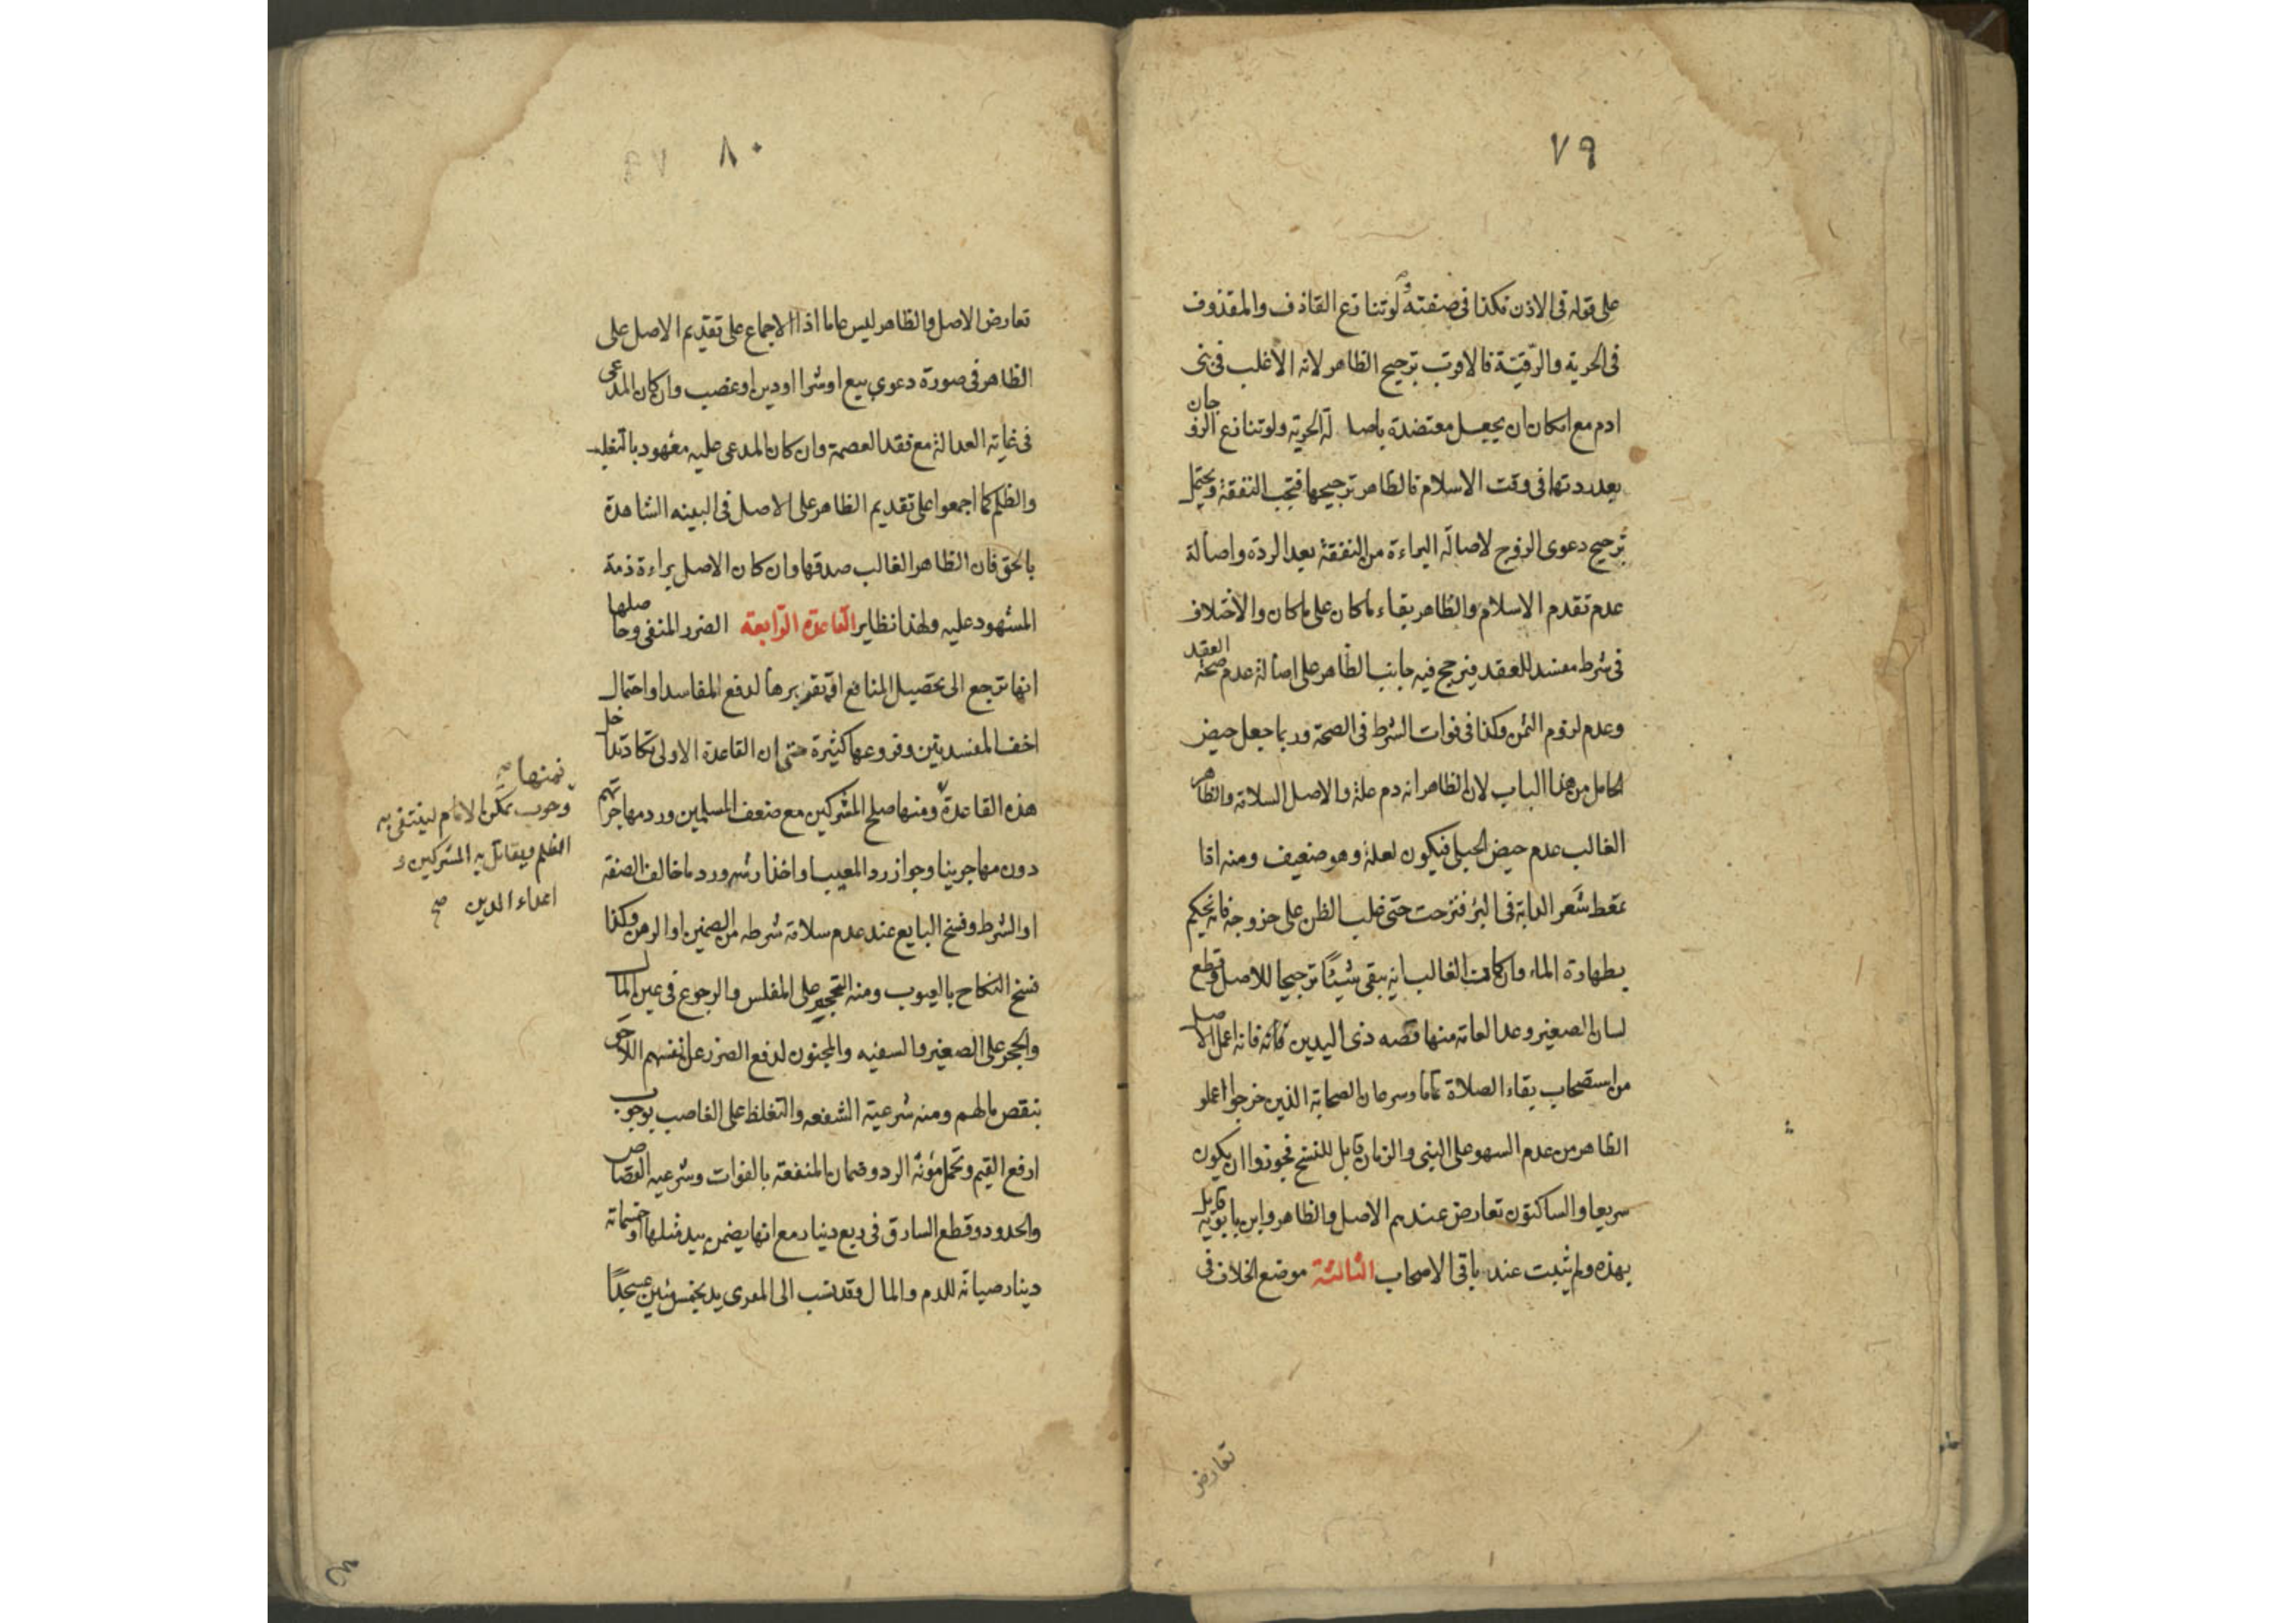 ٧٩
على قوله فى الاذن فكذا فى صفته ولو تنازع القاذف والمقذوف
فى الحرية والرّقيّة فالاقرب ترجيح الظاهر لانه الاغلب فى بنى
ادم مع امكان ان يجعل معتضدة باصا لة الحرية ولو تنازع الزوجان
بعد ردتها فى وقت الاسلام فالظاهر ترجيحها فتجب النفقة ويحتمل
ترجيح دعوى الزوج لاصالة البراءة من النفقة بعد الردة واصالة
عدم تقدم الاسلام والظاهر بقاء ماكان على ماكان والاختلاف
فى شرط مفسد للعقد فيرجح فيه جانب الظاهر على اصالة عدم صحة العقد
وعدم لزوم الثمن وكذا فى فوات الشرط فى الصحة وربما جعل حيض
الحامل من هذا الباب لان الظاهر انه دم علة والاصل السلامة والظاهر
الغالب عدم حيض الحبلى فيكون لعلة وهو ضعيف ومنه اذا
تمعّط شَعر الدابة فى البئر فنزحت حتى غلب الظن على خروجه فانه يحكم
بطهارة الماء وان كانت الغالب انه يبقى شيئًا ترجيحا للاصل وقطع
لسان الصغير وعدا لعامة منها قصه ذى اليدين فانه اعمل الاصل
من استصحاب بقاء الصلاة تماما وسرعان الصحابة الذين خرجوا اعملو
الظاهر من عدم السهو على النبى والزمان قابل للنسخ فجوزوا ان يكون
سريعا والساكتون تعارض عندهم الاصل والظاهر وابن بابويه قايل
بهذه ولم يثبت عند باقى الاصحاب الثالثة موضع الخلاف فى
تعارض
٨٠
تعارض الاصل والظاهر ليس عاما اذ الاجماع على تقديم الاصل على
الظاهر فى صورة دعوى بيع او شرا او دين او غصب وان كان المدعى
فى غاية العدالة مع فقد العصمة وان كان المدعى عليه معهود بالتغلب
والظلم كما اجمعوا على تقديم الظاهر على الاصل فى البينه الشاهدة
بالحق فان الظاهر الغالب صدقها وان كان الاصل براءة ذمة
المشهود عليه ولهذا نظاير القاعدة الرّابعة الضرر المنفى وحاصلها
انها ترجع الى تحصيل المنافع او تقريرها لدفع المفاسد او احتمال
اخف المفسدتين وفروعها كثيرة حتى ان القاعدة الاولى تكاد تداخل
هذه القاعدة ومنها صلح المشركين مع ضعف المسلمين ورد مهاجرتهم
دون مهاجرينا وجواز رد المعيب او اخذ ارشه ورد ما خالف الصفة
او الشرط وفسخ البايع عند عدم سلامة شرطه من الضمين او الرهن وكذا
فسخ النكاح بالعيوب ومنه التحجير على المفلس والرجوع فى عين المال
والحجر على الصغير والسفيه والمجنون لدفع الضرر عن انفسهم اللاحق
بنقص مالهم ومنه شرعية الشفعه والتغلظ على الغاصب بوجوب
ارفع القيم وتحمل مؤنة الرد وضمان المنفعة بالفوات وشرعيه القصاص
والحدود وقطع السارق فى ربع دينار مع انها يضمن بيد مثلها او خمسماته
دينار صيانة للدم والمال وقد نسب الى المعرى يد بخمس مئين عسجدًا
فمنها صح
وجوب تمكن الامام لينتفى به
الظلم ويقاتل به المشركين و
اعداء الدين صح